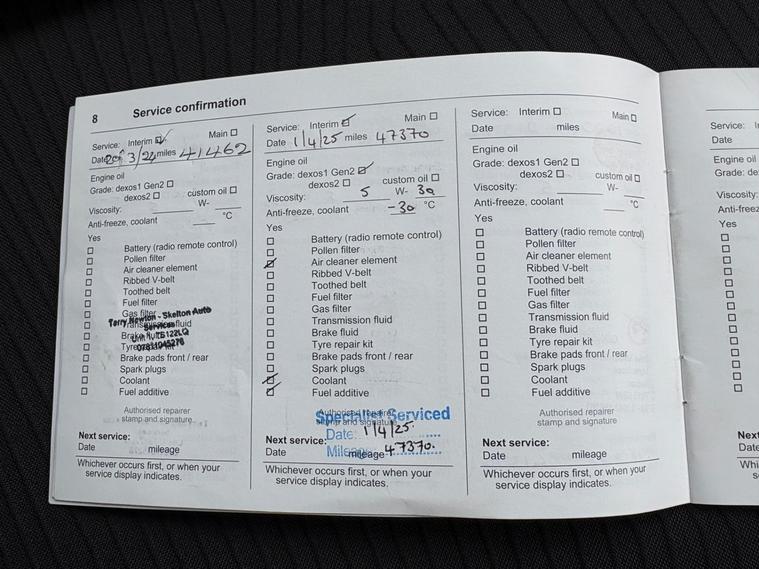 8 Service confirmation
Service: Interim Main
Date 3/24 miles 41462
Engine oil
Grade: dexos1 Gen2
dexos2 custom oil
Viscosity: W-
Anti-freeze, coolant °C
Yes
Battery (radio remote control)
Pollen filter
Air cleaner element
Ribbed V-belt
Toothed belt
Fuel filter
Gas filter
Transmission fluid
Brake fluid
Tyre repair kit
Terry Newton - Skelton Auto
Services
Unit 1, TS122LQ
07831045276
Brake pads front / rear
Spark plugs
Coolant
Fuel additive
Authorised repairer
stamp and signature
Next service:
Date mileage
Whichever occurs first, or when your
service display indicates.
Service: Interim Main
Date 1/4/25 miles 47370
Engine oil
Grade: dexos1 Gen2
dexos2 custom oil
Viscosity: 5 W- 30
Anti-freeze, coolant -30 °C
Yes
Battery (radio remote control)
Pollen filter
Air cleaner element
Ribbed V-belt
Toothed belt
Fuel filter
Gas filter
Transmission fluid
Brake fluid
Tyre repair kit
Brake pads front / rear
Spark plugs
Coolant
Fuel additive
Authorised repairer
stamp and signature
Specialist Serviced
Date: 1/4/25
Mileage 47370.
Next service:
Date mileage
Whichever occurs first, or when your
service display indicates.
Service: Interim Main
Date miles
Engine oil
Grade: dexos1 Gen2
dexos2 custom oil
Viscosity: W-
Anti-freeze, coolant °C
Yes
Battery (radio remote control)
Pollen filter
Air cleaner element
Ribbed V-belt
Toothed belt
Fuel filter
Gas filter
Transmission fluid
Brake fluid
Tyre repair kit
Brake pads front / rear
Spark plugs
Coolant
Fuel additive
Authorised repairer
stamp and signature
Next service:
Date mileage
Whichever occurs first, or when your
service display indicates.
Service:
Date
Engine oil
Grade:
Viscosity:
Yes
Next
Date